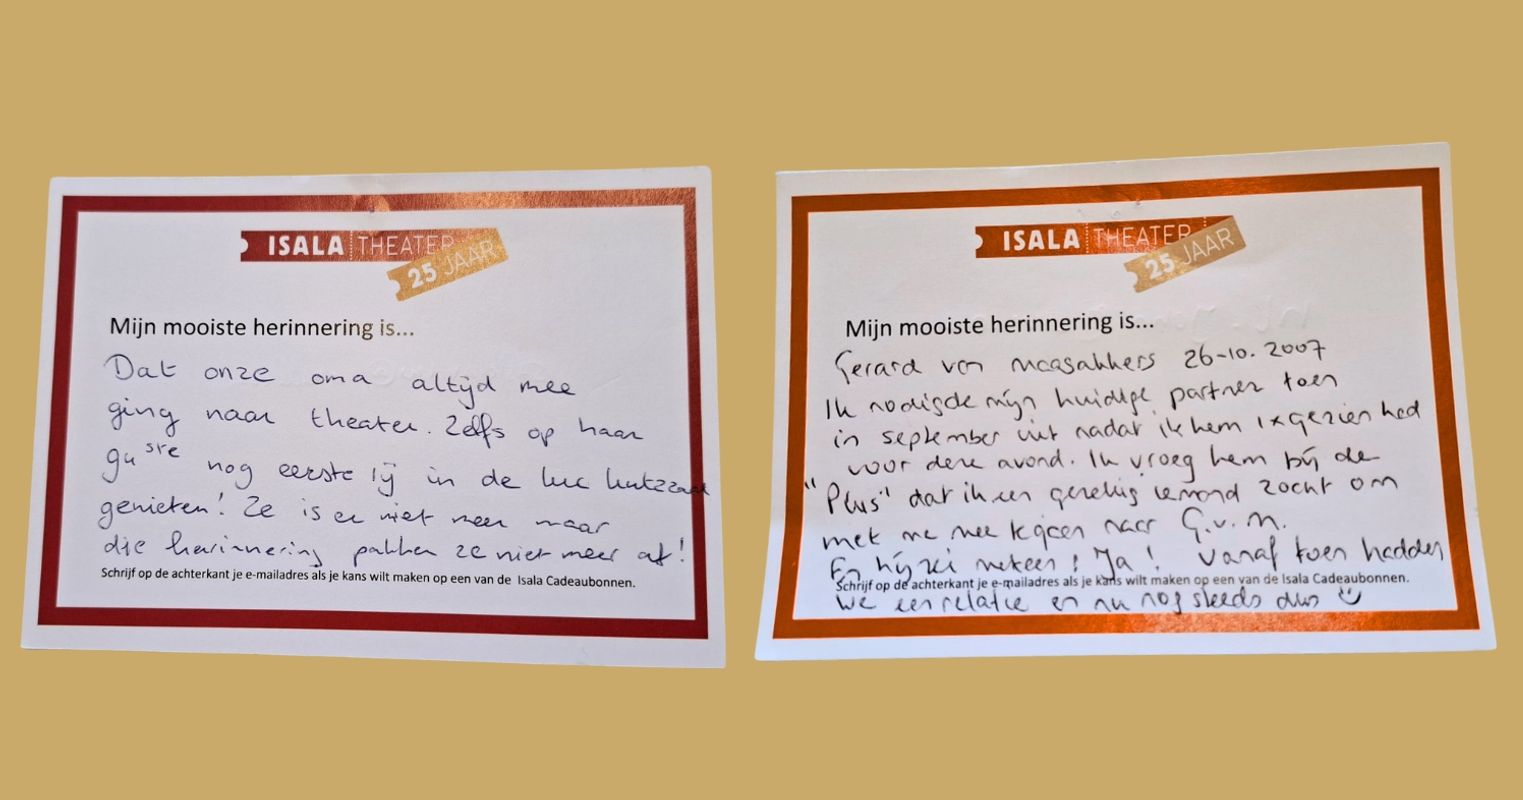 ISALA THEATER
25 JAAR
Mijn mooiste herinnering is...
Dat onze oma altijd mee
ging naar theater. Zelfs op haar
94ste nog eerste rij in de luc lutzzaal
genieten! Ze is er niet meer maar
die herinnering pakken ze niet meer af!
Schrijf op de achterkant je e-mailadres als je kans wilt maken op een van de Isala Cadeaubonnen.
ISALA THEATER
25 JAAR
Mijn mooiste herinnering is...
Gerard van Maasakkers 26-10.2007
Ik nodigde mijn huidige partner toen
in september uit nadat ik hem 1x gezien had
voor deze avond. Ik vroeg hem bij de
"Plus" dat ik een gezellig iemand zocht om
met me mee te gaan naar G.v.M.
En hij zei meteen: Ja! Vanaf toen hadden
Schrijf op de achterkant je e-mailadres als je kans wilt maken op een van de Isala Cadeaubonnen.
we een relatie en nu nog steeds dus